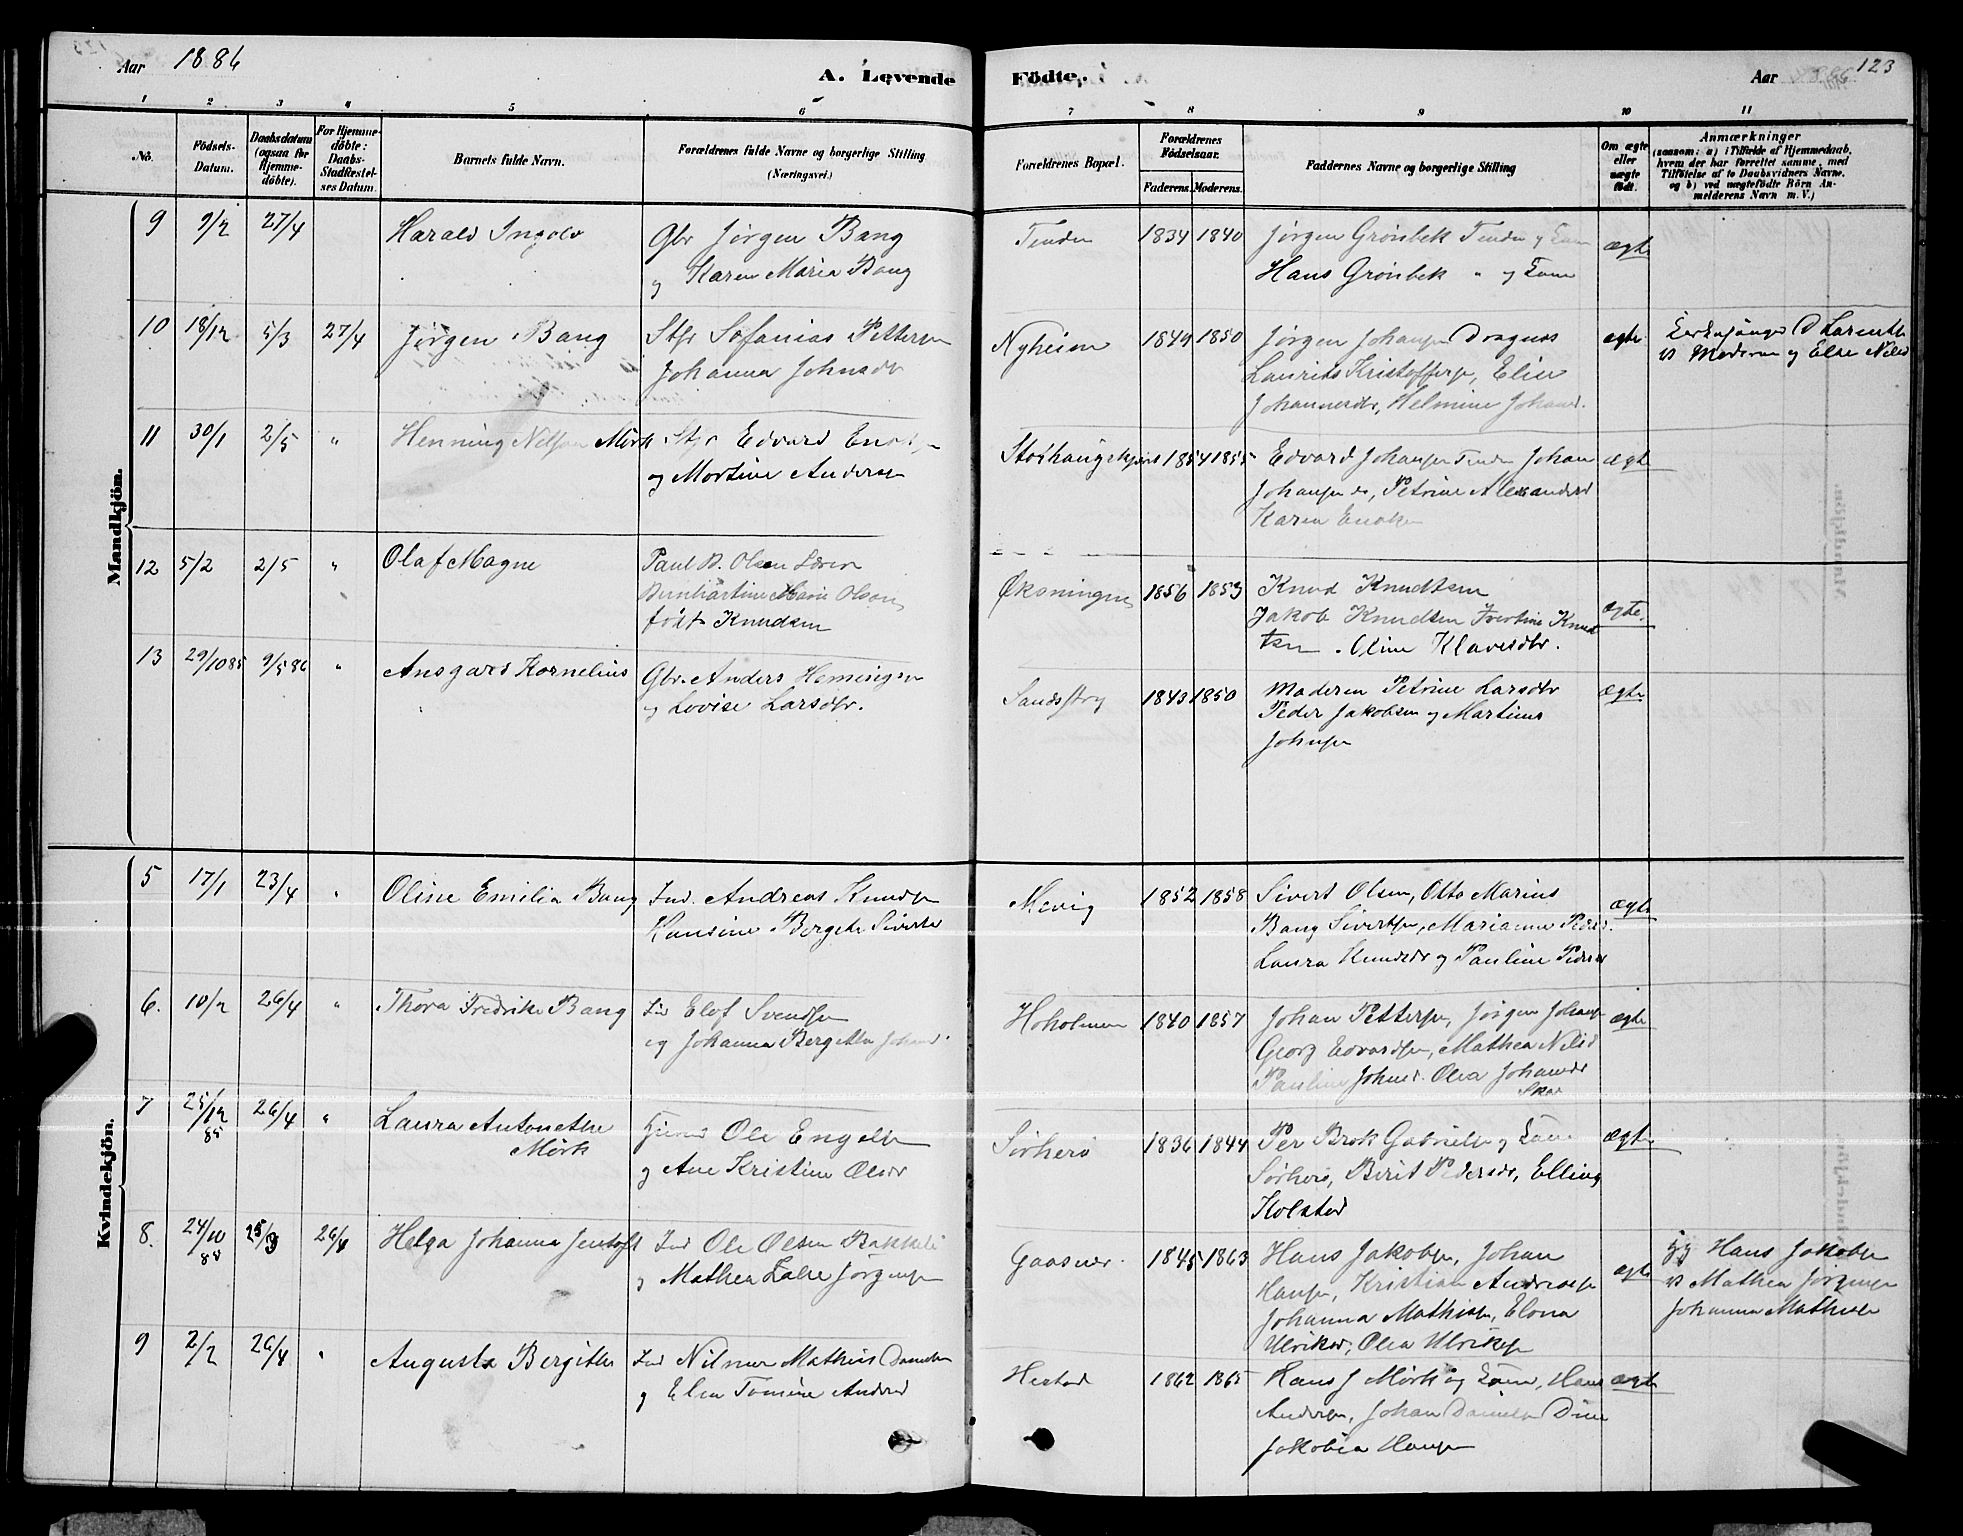 Aar 1886
A. Levende
Fødte.
Aar 1886 123
1 2 3 4 5 6 7 8 9 10 11
No.
Fødsels-
Datum.
Daabsdatum
(ogsaa for
Hjemme-
döbte).
For Hjemme-
döbte:
Daabs-
Stadfæstel-
ses Datum.
Barnets fulde Navn.
Forældrenes fulde Navne og borgerlige Stilling
(Næringsvei.)
Forældrenes Bopæl.
Forældrenes
Födselsaar.
Faderens. Moderens.
Faddernes Navne og borgerlige Stilling
Om ægte
eller
uægte
födt.
Anmærkninger
(saasom: a) i Tilfælde af Hjemmedaab,
hvem der har forrettet samme, med
Tilföielse af to Daabsvidners Navne,
og b) ved uægtefödte Börn An-
melderens Navn m. V.)
Mandkjön.
9 9/2 27/4 Harald Ingolv
Gbr Jørgen Bang
og Karen Maria Bang
Tenden 1834 1840
Jørgen Grönbek Tenden og Kone
Hans Grönbek " og Kone
ægte
10 18/12 5/3 27/4 Jørgen Bang
Stfr Sefanias Pettersen
Johanna Johnsdr
Nyheim 1849 1850
Jørgen Johansen Dragnes
Laurits Kristoffersen, Elise
Johannesdr, Helmine Johans.
ægte
Kirkesanger D Larents
vs Moderen og Else Nilsd
11 30/1 2/5 " Henning Nilsen Mörk
Stfr Edvard Enoks
og Mortine Andersen
1854 1855
Edvard Johansen Tenden Johan
Johansen ds, Petrine Alexandersd
Karen Enoksen
ægte
12 5/2 2/5 " Olaf Magne
Paul B. Olsen Lærer
Bernhartine Marie Olsen
födt Knudsen
Øksningen 1856 1853
Knud Knudtsen
Jakob Knudtsen Knud
tsen. Oline Klavesdtr.
ægte.
13 29/10 85 9/5 86 " Ansgard Kornelius
Gbr. Anders Hemingsen
og Lovise Larsdtr.
1843 1850
Moderen Petrine Larsdtr
Peder Jakobsen og Martinus
Johnsen
ægte
Kvindekjön.
5 17/1 23/4 " Oline Emilia Bang
Ind. Andreas Knudsen
Hansine Bergete Sivertsd
Mevig 1852 1858
Sivert Olsen, Otto Marius
Bang Sivertsen, Marianne Peders.
Laura Knudsdr og Pauline Pedersd
ægte
6. 10/2 26/4 " Thora Fredrike Bang
Ind Elof Svendsen
og Johanna Bergette Johans.
Hoholmen 1840 1857
Johan Pettersen, Jørgen Johans
Georg Edvardsen, Mathea Nilsd
Pauline Johnsd. Olea Johansdr
ægte
7 25/12 85 26/4 " Laura Antonette
Mörk
Ole Engelsen
og Ane Kristine Olsdr
Sörherö 1836 1844
Per Brok Gabrielsen og Kone
Sörherö, Berit Pedersdr, Elling
Kolstad
ægte
8. 24/10 85 25/3 26/4 Helga Johanna Jentoft
Ind Ole Olsen Bakkeli
og Mathea Jørgensen
Gaasvær. 1845 1863
Hans Jakobsen, Johan
Hansen, Kristian Andreasen
Johanna Mathisen, Elona
Ulriksd, Olea Ulriksen
ægte
Hans Jakobsen
vs Mathea Jörgensen
Johanna Mathisen
9 2/2 26/4 " Augusta Bergitte
Ind Nilmer Mathias Danielsen
og Elen Tomine Andersd
Herstad 1862 1865
Hans J Mörk og Kone, Hans
Andersen, Johan Danielsen
Jakobia Hansen
ægte